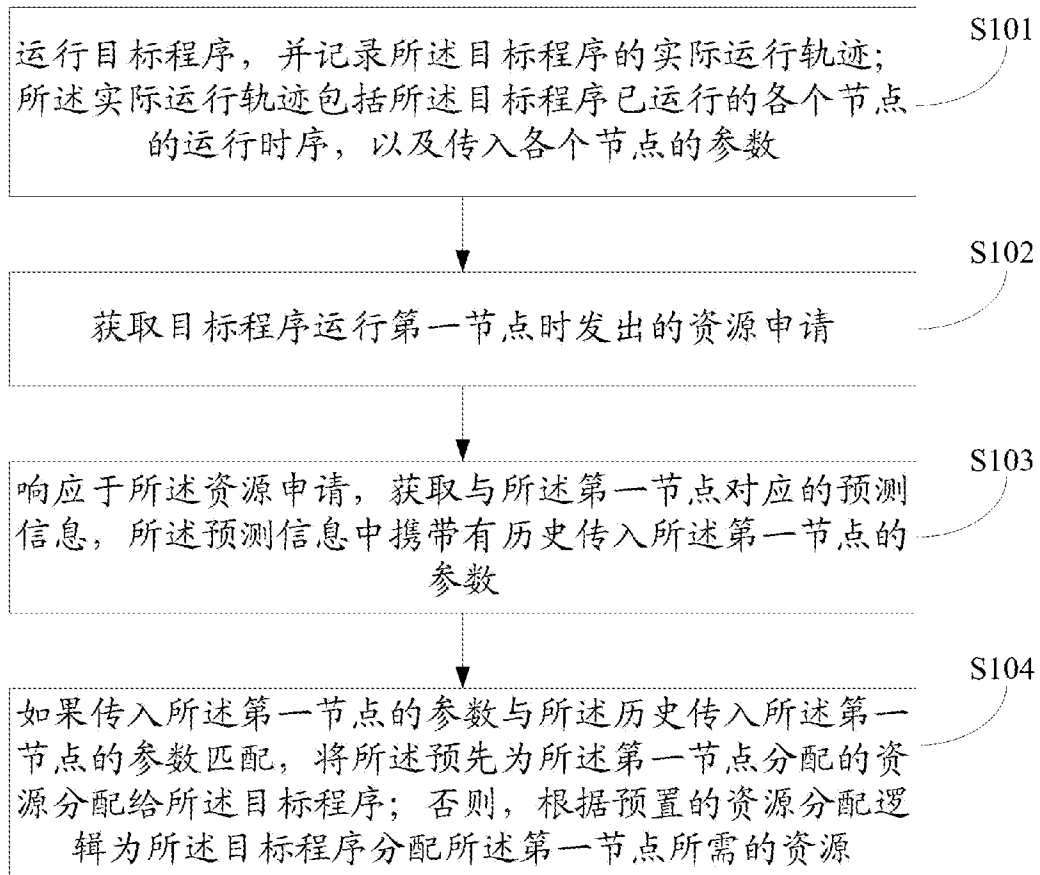 S101
运行目标程序，并记录所述目标程序的实际运行轨迹；
所述实际运行轨迹包括所述目标程序已运行的各个节点
的运行时序，以及传入各个节点的参数
S102
获取目标程序运行第一节点时发出的资源申请
S103
响应于所述资源申请，获取与所述第一节点对应的预测
信息，所述预测信息中携带有历史传入所述第一节点的
参数
S104
如果传入所述第一节点的参数与所述历史传入所述第一
节点的参数匹配，将所述预先为所述第一节点分配的资
源分配给所述目标程序；否则，根据预置的资源分配逻
辑为所述目标程序分配所述第一节点所需的资源